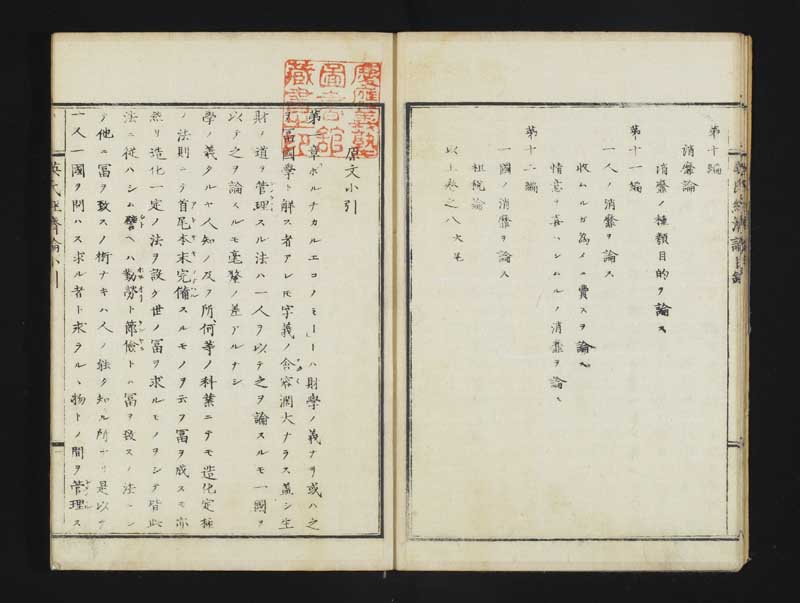 第十編
消靡論
消靡ノ種類目的ヲ論ス
第十一編
一人ノ消靡ヲ論ス
収ムルガ為メニ費スヲ論ス
情意ヲ喜ハシムルノ消靡ヲ論ス
第十二編
一國ノ消靡ヲ論ス
租税論
以上巻之八大尾
慶應義塾
圖書館
藏書之印
原文小引
第一章ポルチカルエコノモーハ財學ノ義ナリ或ハ之
ヲ富國學ト解ス者アレモ字義ノ含容濶大ナラス蓋シ生
財ノ道ヲ管理スル法ハ一人ヲ以テ之ヲ論スルモ一國ヲ
以テ之ヲ論スルモ毫釐ノ差アルナシ
學ノ義タルヤ人知ノ及フ所何等ノ科業ニテモ造化定極
ノ法則ニテ首尾本末完備スルモノヲ云フ冨ヲ成スモ亦
然リ造化一定ノ法ヲ設ク世ノ冨ヲ求ルモノヲシテ皆此
法ニ從ハシム譬ヘハ勤勞ト節儉トハ冨ヲ致スノ法ニシ
テ他ニ冨ヲ致スノ術ナキハ人ノ能ク知ル所ナリ是以テ
一人一國ヲ問ハス求ル者ト求ラルヽ物トノ間ヲ管理ス
英氏經濟論小引